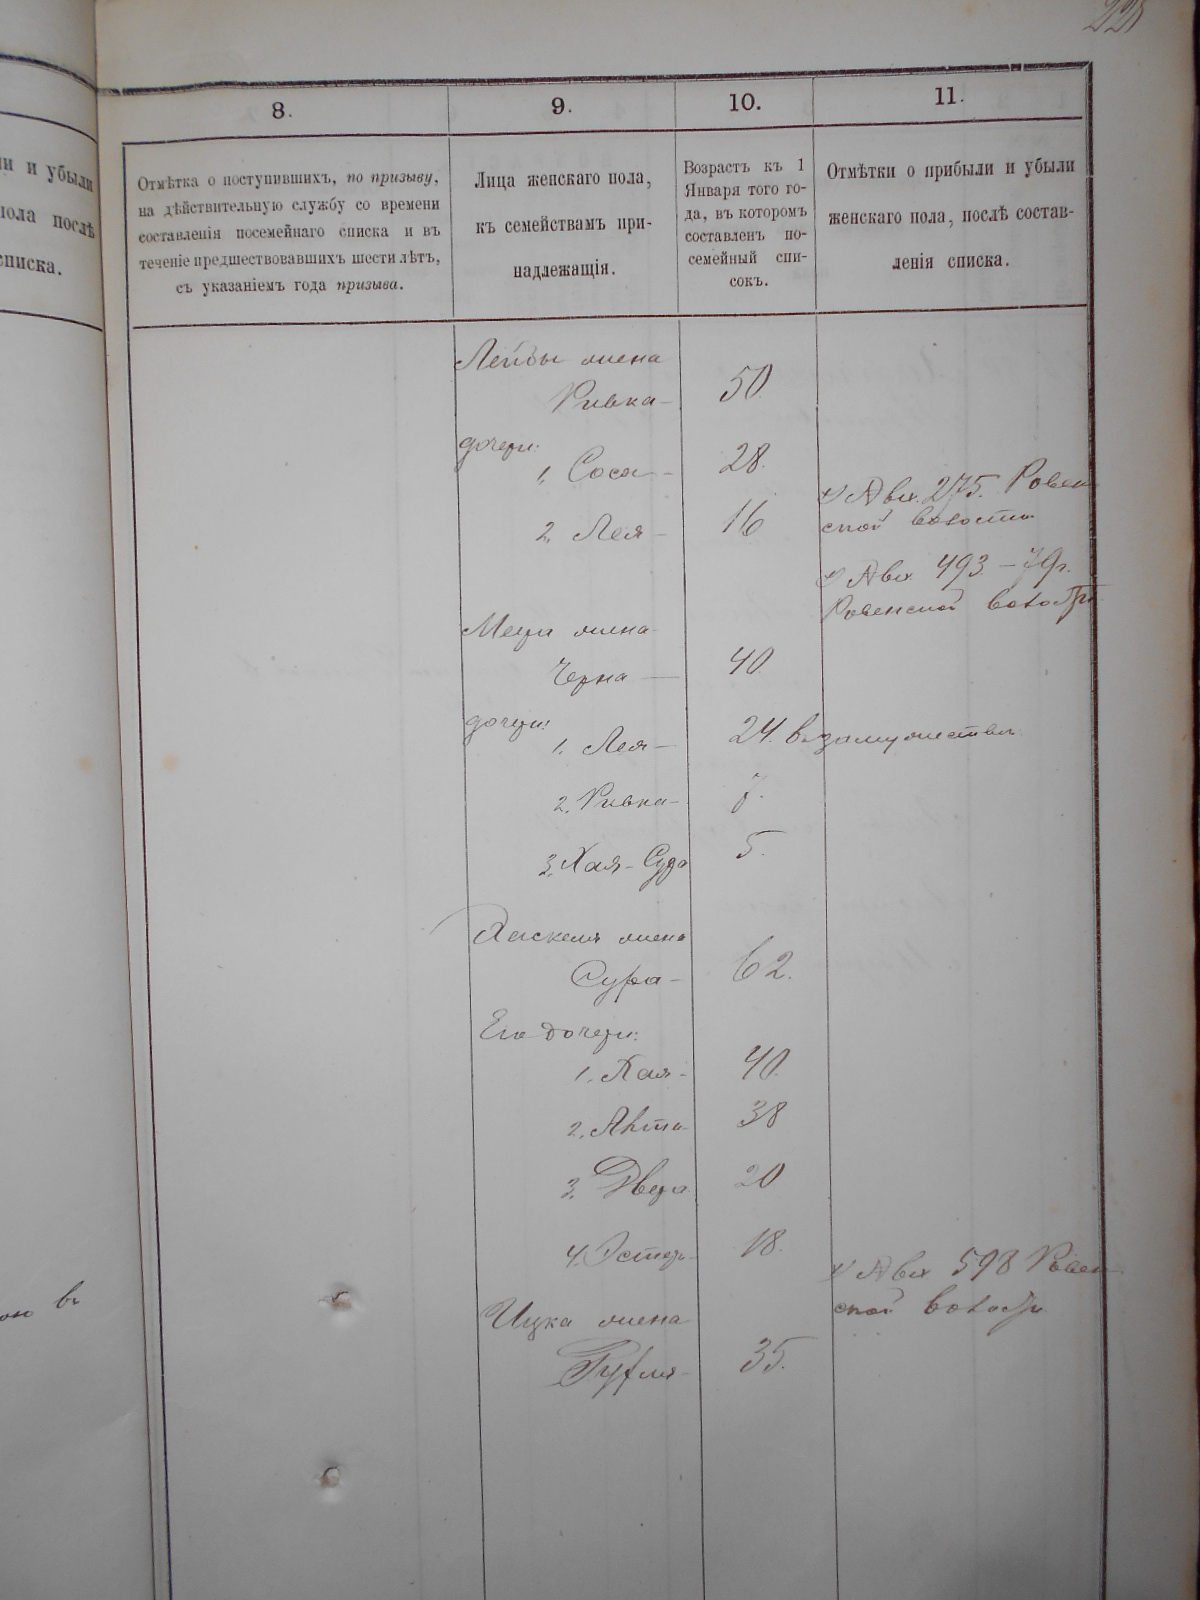 8.
9.
10.
11.
и и убыли
пола послѣ
списка.
Отмѣтка о поступившихъ, по призыву,
на дѣйствительную службу со времени
составленія посемейнаго списка и въ
теченіе предшествовавшихъ шести лѣтъ,
съ указаніемъ года призыва.
Лица женскаго пола,
къ семействамъ при-
надлежащія.
Возрастъ къ 1
Января того го-
да, въ которомъ
составленъ по-
семейный спи-
сокъ.
Отмѣтки о прибыли и убыли
женскаго пола, послѣ состав-
ленія списка.
Лейбы жена
Ривка - 50.
дочери:
1, Соса - 28.
275. Ровен
2, Лея - 16
ской волости
493 - 79г.
Ровенской волости
жена
Черна — 40
дочери:
1. Лея - 24. в замужестве
2. Ривка - 7.
3. Хая - Сура 5.
Хаскеля жена
Сура - 62.
Его дочери:
1. Хая - 40.
2. 38
3. Двера 20
4. Эстеръ 18.
598 Ровен
ской волости
Ицка жена
35.